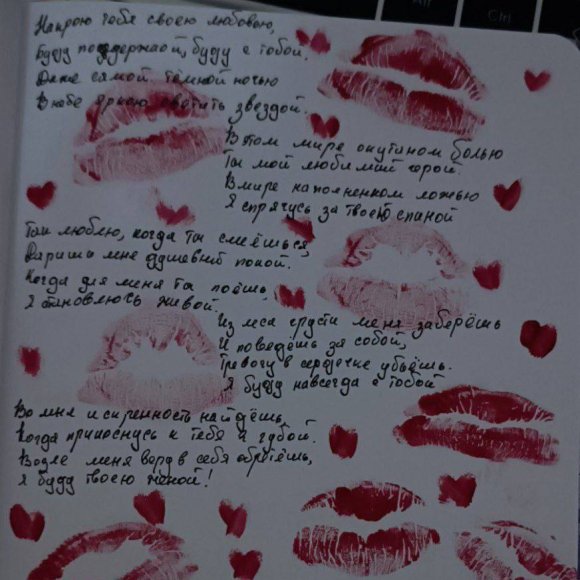 Alt
Ctrl
Накрою тебя своею любовью,
Буду поддержкой, буду с тобой.
Даже самой тёмной ночью
В небе яркою светить звездой.
В этом мире окутаном болью
Ты мой любимый герой.
В мире наполненном ложью
Я спрячусь за твоею спиной
Так люблю, когда ты смеёшься,
Даришь мне душевный покой.
Когда для меня ты поёшь,
Я становлюсь живой.
Из леса грусти меня заберёшь
И поведёшь за собой,
Тревогу в сердечке убьёшь.
Я буду навсегда с тобой
Во мне искренность найдёшь,
Когда прикоснусь к тебе я губой.
Возле меня веру в себя обретёшь,
Я буду твоею женой!